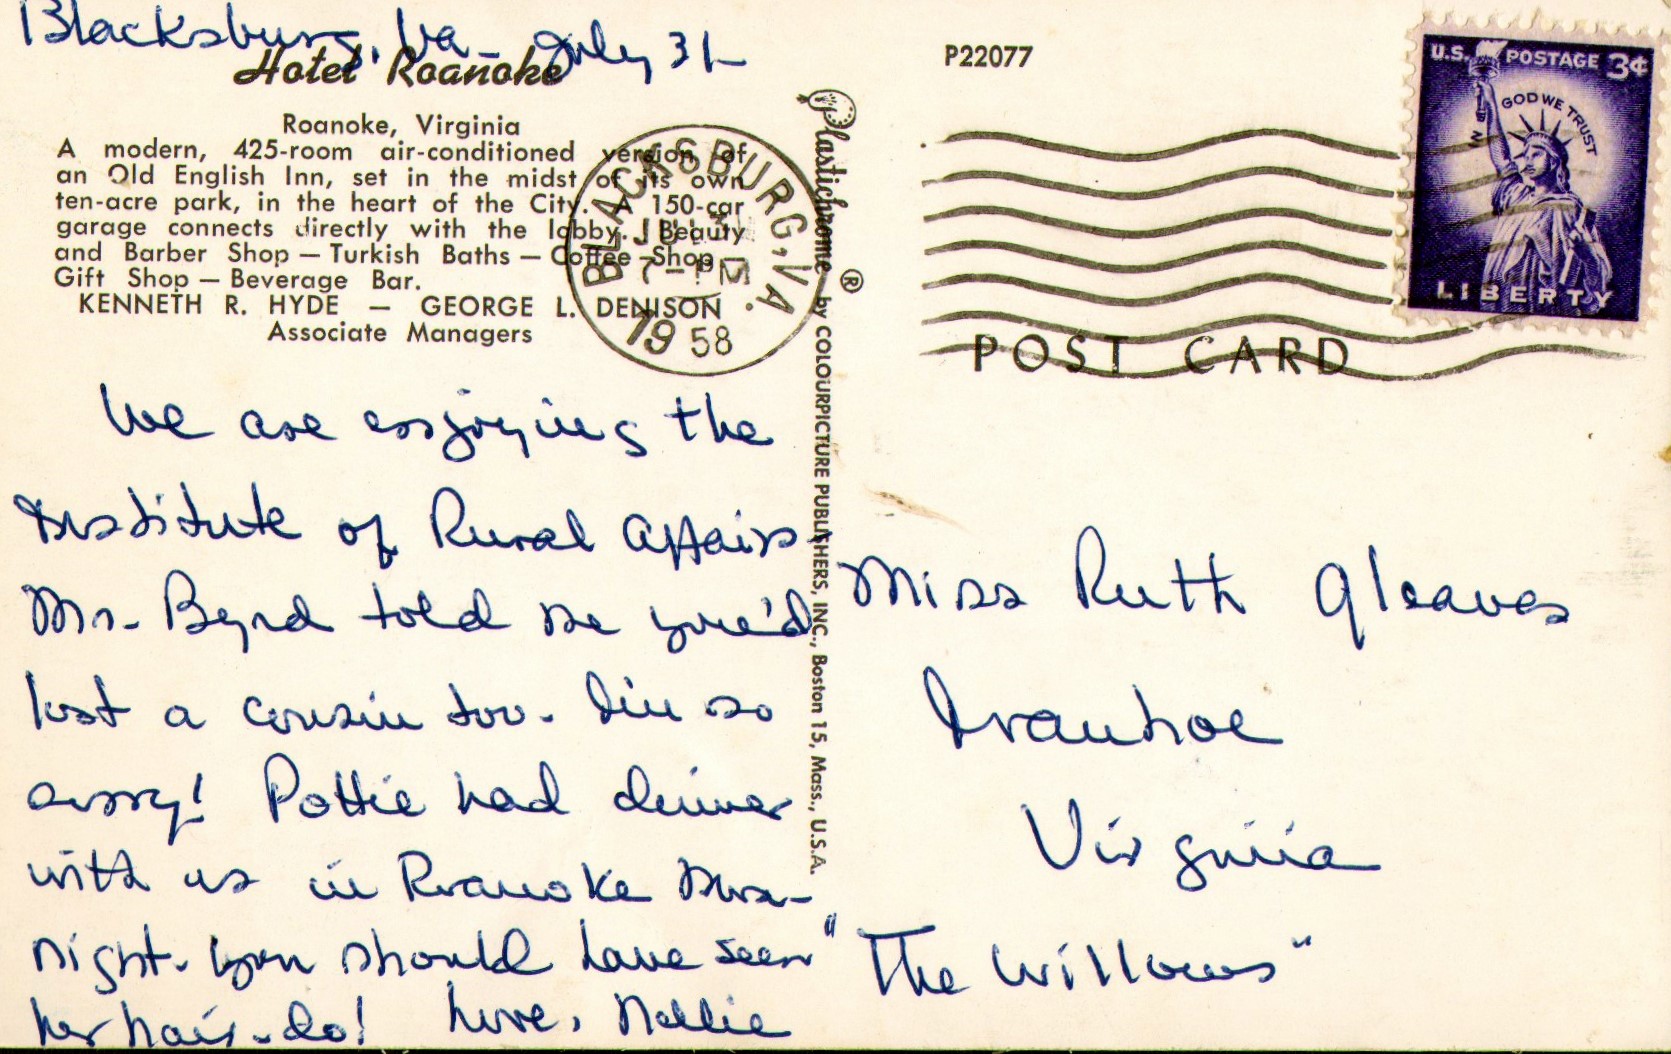 Blacksburg, Va - July 31
Hotel Roanoke
Roanoke, Virginia
A modern, 425-room air-conditioned version of
an Old English Inn, set in the midst of its own
ten-acre park, in the heart of the City. A 150-car
garage connects directly with the lobby. Beauty
and Barber Shop — Turkish Baths — Coffee Shop
Gift Shop — Beverage Bar.
KENNETH R. HYDE — GEORGE L. DENISON
Associate Managers
We are enjoying the
Institute of Rural Affairs -
Mr. Byrd told me you'd
lost a cousin too. I'm so
sorry! Pottie had dinner
with us in Roanoke
night. You should have seen
her hair-do! Love, Nellie
BLACKSBURG, VA.
JUL 31
7 - PM
1958
Plastichrome ® by COLOURPICTURE PUBLISHERS, INC., Boston 15, Mass., U.S.A.
P22077
U.S. POSTAGE 3¢
IN GOD WE TRUST
LIBERTY
POST CARD
Miss Ruth Gleaves
Ivanhoe
Virginia
"The Willows"